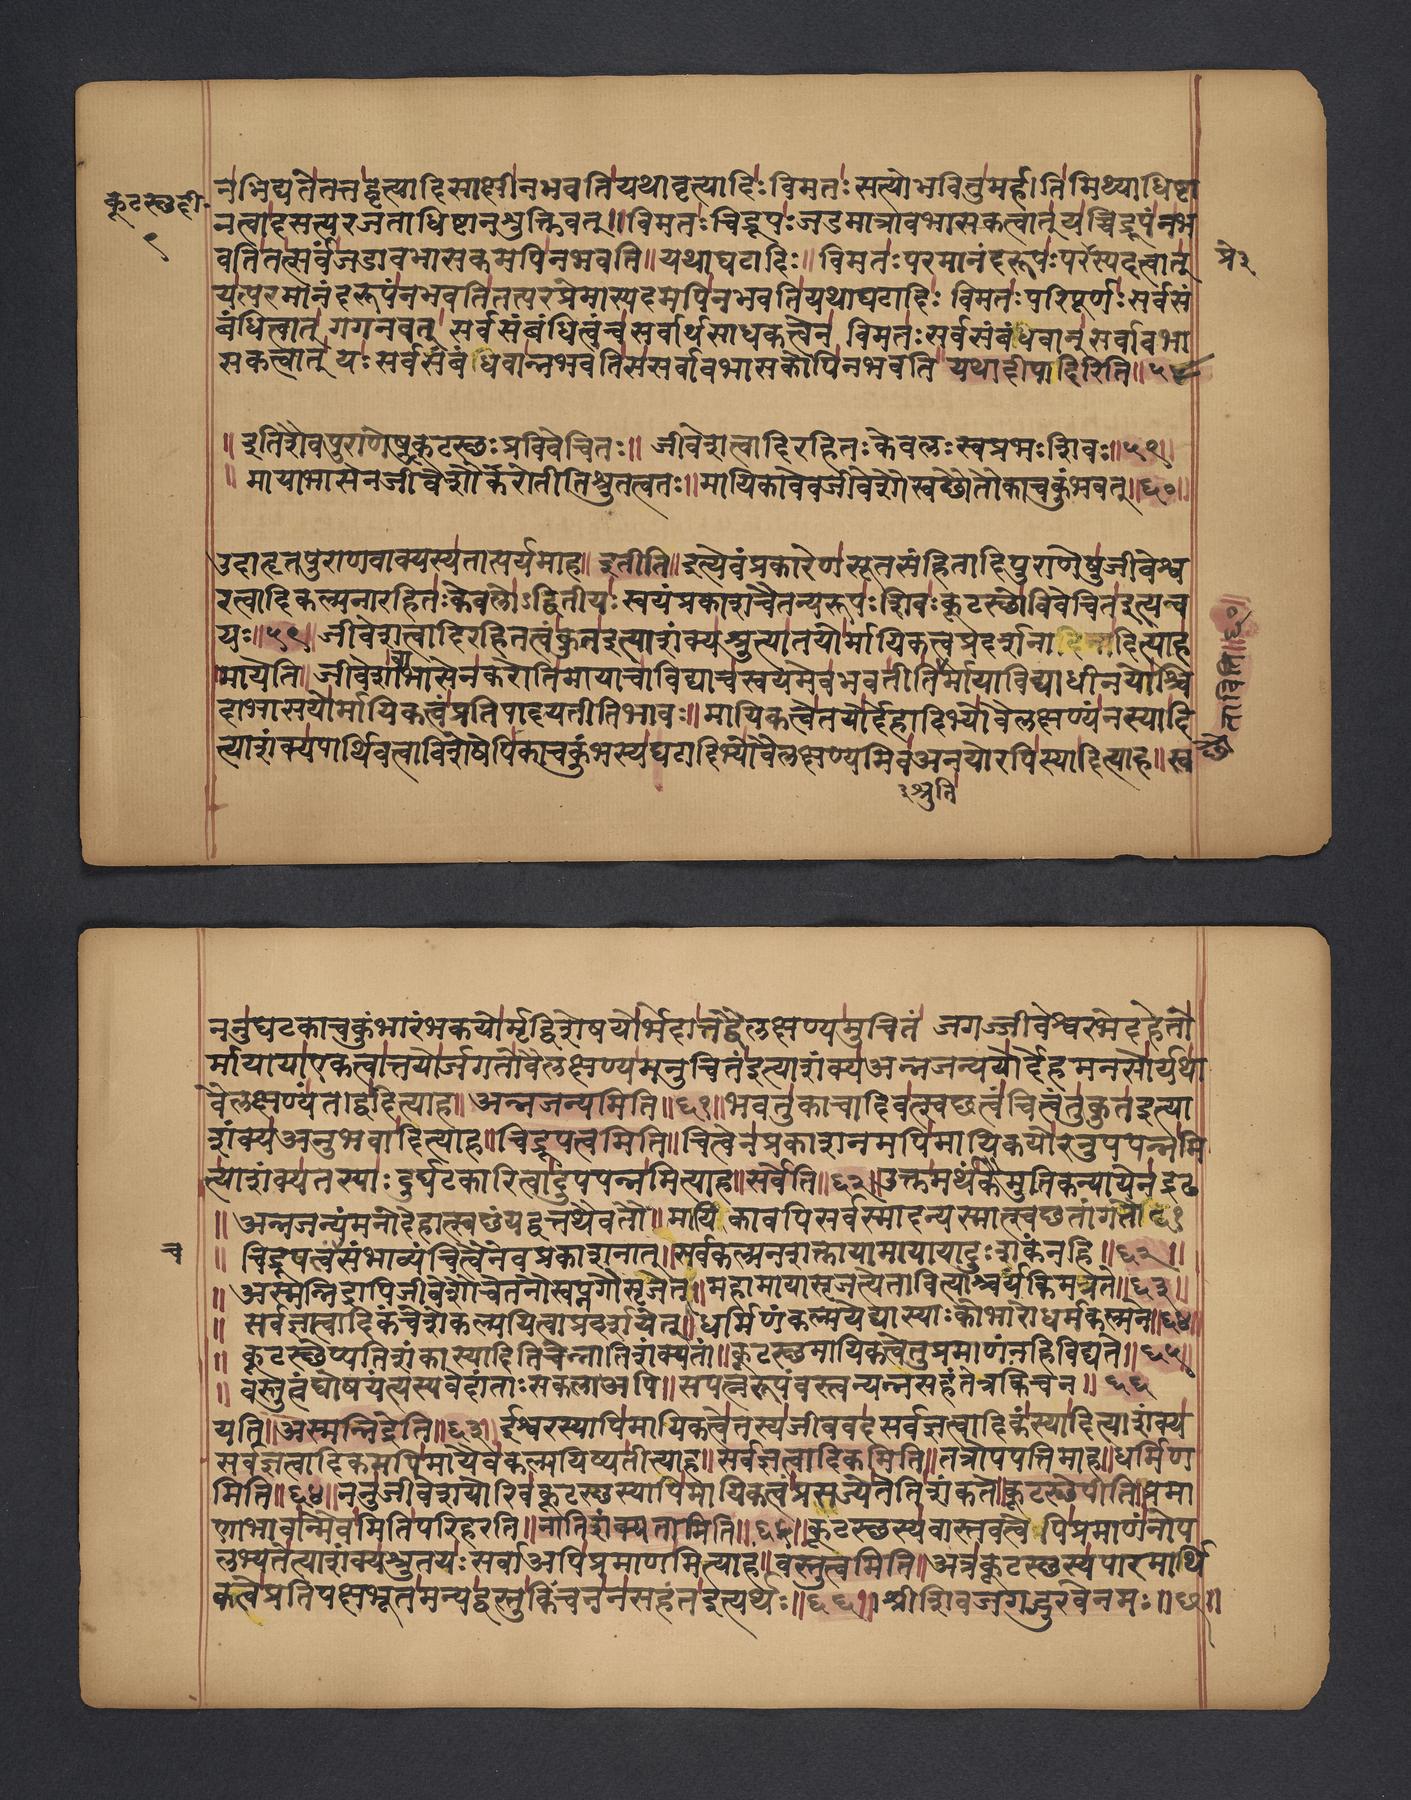 कूटस्थदी॰
९
नभिद्यतेतत्तद्वृत्यादिसाक्षीनभवतियथावृत्यादिः विमतः सत्योभवितुमर्हति मिथ्याधिष्टा
नत्वादसत्यरजताधिष्टानशुक्तिवत् ॥ विमतःचिद्रूपःजडमात्रावभासकत्वात् यच्चिद्रूपंनभ
वतितत्सर्वंजडावभासकमपिनभवति ॥ यथाघटादिः ॥ विमतःपरमानंदरूपःपरास्पदत्वात्
प्रे ३
यत्परमानंदरूपंनभवतितत्परप्रेमास्पदमपिनभवतियथाघटादिः विमतः परिपूर्णः सर्वसं
बंधित्वात् गगनवत् सर्वसंबंधित्वंच सर्वार्थसाधकत्वेन विमतः सर्वसंबंधिवान् सर्वावभा
सकत्वात् यः सर्वसंबंधिवान्नभवतिससर्वावभासकोपिनभवति यथादीपादिरिति ॥ ५८
॥ इतिशैवपुराणेषुकूटस्थःप्रविवेचितः ॥ जीवेशत्वादिरहितःकेवलःस्वप्रभःशिवः ॥ ५९ ॥
॥ मायाभासेनजीवेशौकरोतीतिश्रुतत्वतः ॥ मायिकावेवजीवेशौस्वच्छौतौकाचकुंभवत् ॥ ६० ॥
उदाहृतपुराणवाक्यस्यतात्पर्यमाह ॥ इतीति ॥ इत्येवंप्रकारेणसूतसंहितादिपुराणेषुजीवेश्व
रत्वादिकल्पनारहितःकेवलोऽद्वितीयः स्वयंप्रकाशचैतन्यरूपः शिवः कूटस्थोविवेचितइत्यन्व
यः ॥ ५९ ॥ जीवेशत्वादिरहितत्वंकुतइत्याशंक्यश्रुत्यातयोर्मायिकत्वप्रदर्शनादित्याह
मायेति ॥ जीवेशावाभासेनकरोतिमायाचाविद्याचस्वयमेवभवतीतिर्मायाविद्याधीनयोश्चि
दाभासयोर्मायिकत्वंप्रतिपादयतीतिभावः ॥ मायिकत्वेतयोर्देहादिभ्योवैलक्षण्यंनस्यादि
त्याशंक्यपार्थिवत्वाविशेषेपिकाचकुंभस्यघटादिभ्योवैलक्षण्यमिवअनयोरपिस्यादित्याह ॥ स्व
च्छौताविति ॥ ६० ॥
३ श्रुति
ननुघटकाचकुंभारंभकयोर्मृद्विशेषयोर्भेदात्तद्वैलक्षण्यमुचितं जगज्जीवेश्वरभेदहेतो
र्मायायाएकत्वात्तयोर्जगतोवैलक्षण्यमनुचितंइत्याशंक्यअन्नजन्ययोर्देहमनसोर्यथा
वैलक्षण्यंतद्वदित्याह ॥ अन्नजन्यमिति ॥ ६१ ॥ भवतुकाचादिवत्स्वच्छत्वंचित्त्वंतुकुतइत्या
शंक्यअनुभवादित्याह ॥ चिद्रूपत्वमिति ॥ चित्त्वेनप्रकाशनमपिमायिकयोरनुपपन्नमि
त्याशंक्यतस्याः दुर्घटकारित्वादुपपन्नमित्याह ॥ सर्वेति ॥ ६२ ॥ उक्तमर्थंकैमुतिकन्यायेनदृढ
॥ अन्नजन्यंमनोदेहात्स्वच्छंयद्वत्तथैवतौ ॥ मायिकावपिसर्वस्मादन्यस्मात्स्वच्छतांगतौ ॥ ६१
च
॥ चिद्रूपत्वंचसंभाव्यंचित्त्वेनैवप्रकाशनात् ॥ सर्वकल्पनशक्तायामायायादुःशकंनहि ॥ ६२ ॥
॥ अस्मन्निद्रापिजीवेशौचेतनौस्वप्नगौसृजेत् ॥ महामायासृजत्येतावित्याश्चर्यंकिमत्रते ॥ ६३ ॥
॥ सर्वज्ञत्वादिकंचेशेकल्पयित्वाप्रदर्शयेत् ॥ धर्मिणंकल्पयेद्यास्याःकोभारोधर्मकल्पने ॥ ६४ ॥
॥ कूटस्थेप्यतिशंकास्यादितिचेन्मातिशंक्यतां ॥ कूटस्थमायिकत्वेतुप्रमाणंनहिविद्यते ॥ ६५ ॥
॥ वस्तुत्वंघोषयंत्यस्यवेदांताःसकलाअपि ॥ सपत्नरूपंवस्त्वन्यन्नसहंतेत्रकिंचन ॥ ६६
यति ॥ अस्मन्निद्रेति ॥ ६३ ॥ ईश्वरस्यापिमायिकत्वेतस्यजीववदसर्वज्ञत्वादिकंस्यादित्याशंक्य
सर्वज्ञत्वादिकमपिमायैवकल्पयिष्यतीत्याह ॥ सर्वज्ञत्वादिकमिति ॥ तत्रोपपत्तिमाह ॥ धर्मिण
मिति ॥ ६४ ॥ ननुजीवेशयोरिवकूटस्थस्यापिमायिकत्वंप्रसज्येतेतिशंकते ॥ कूटस्थेपीति ॥ प्रमा
णाभावान्मैवमितिपरिहरति ॥ नातिशंक्यतामिति ॥ ६५ ॥ कूटस्थस्यवास्तवत्वेपिप्रमाणंनोप
लभ्यतेत्याशंक्यश्रुतयः सर्वाअपिप्रमाणमित्याह ॥ वस्तुत्वमिति ॥ अत्रकूटस्थस्यपारमार्थि
कत्वेप्रतिपक्षभूतमन्यद्वस्तुकिंचननसहंतइत्यर्थः ॥ ६६ ॥ श्रीशिवजगद्गुरवेनमः ॥ छ ॥